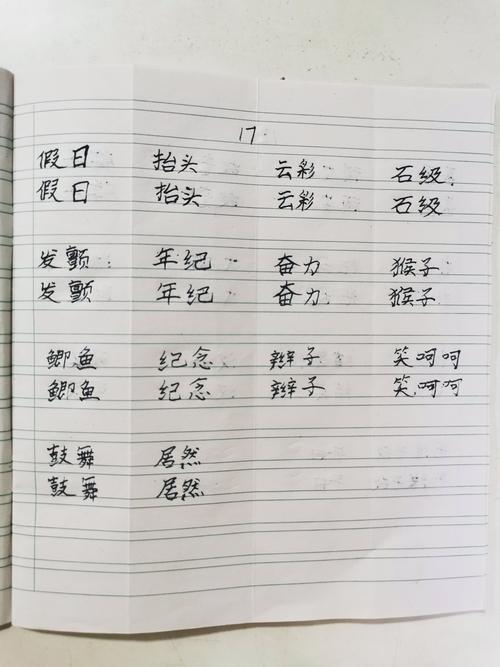 17
假日 抬头 云彩 石级
假日 抬头 云彩 石级
发颤 年纪 奋力 猴子
发颤 年纪 奋力 猴子
鲫鱼 纪念 辫子 笑呵呵
鲫鱼 纪念 辫子 笑呵呵
鼓舞 居然
鼓舞 居然